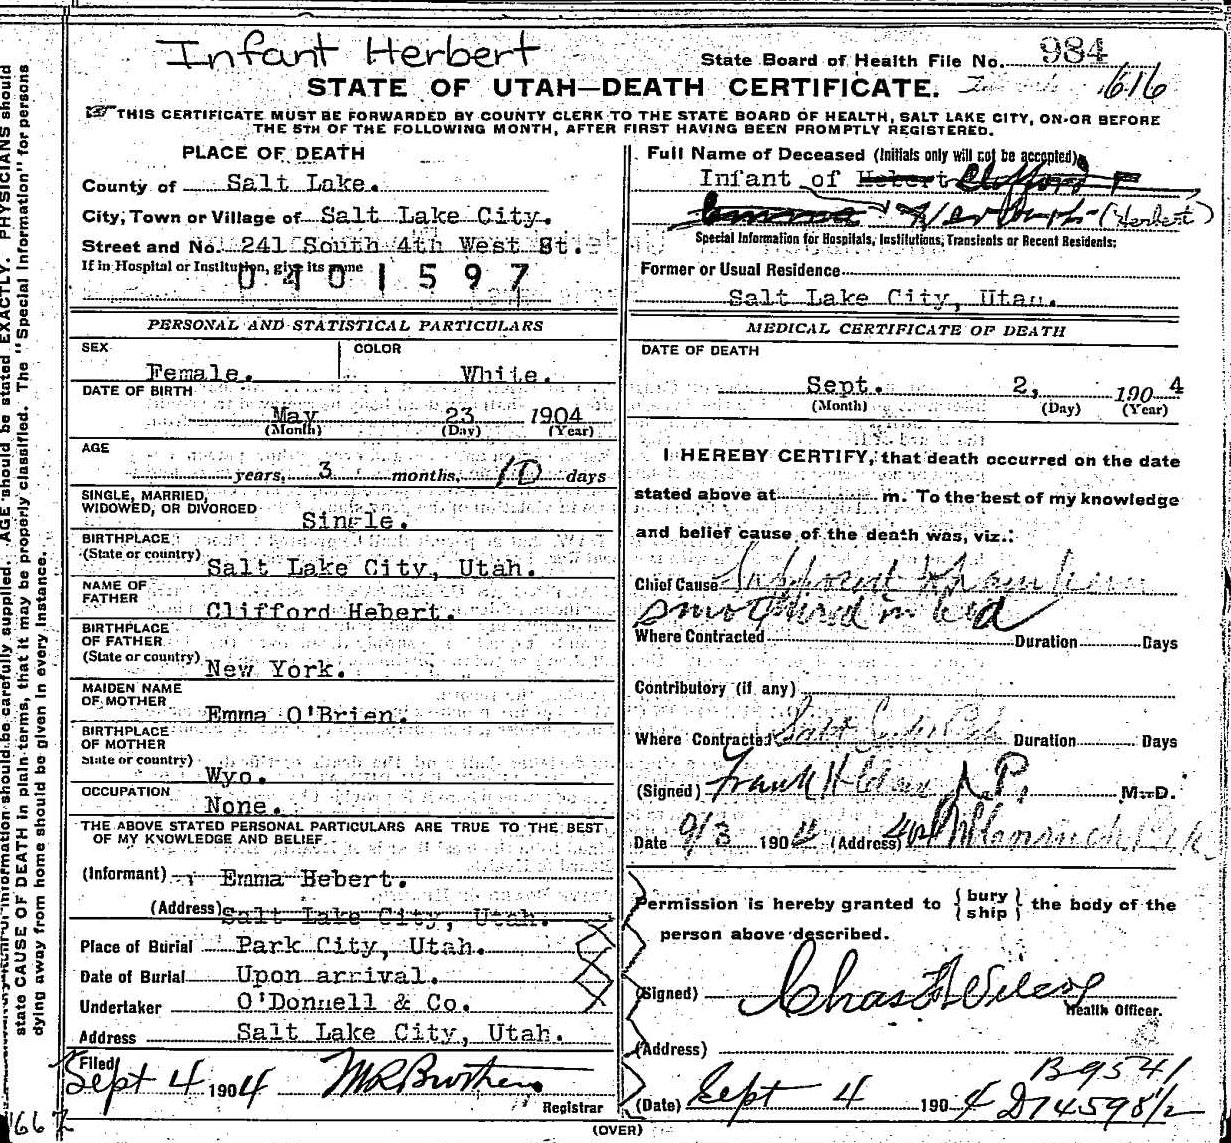 Infant Herbert
State Board of Health File No. 984
STATE OF UTAH—DEATH CERTIFICATE. 1616
THIS CERTIFICATE MUST BE FORWARDED BY COUNTY CLERK TO THE STATE BOARD OF HEALTH, SALT LAKE CITY, ON OR BEFORE
THE 5TH OF THE FOLLOWING MONTH, AFTER FIRST HAVING BEEN PROMPTLY REGISTERED.
PLACE OF DEATH
County of Salt Lake.
City, Town or Village of Salt Lake City.
Street and No. 241 South 4th West St.
If in Hospital or Institution, give its name
0401597
Full Name of Deceased (Initials only will not be accepted)
Infant of Hebert Clifford F
Emma Herbert (Herbert)
Special Information for Hospitals, Institutions, Transients or Recent Residents:
Former or Usual Residence
Salt Lake City, Utah.
PERSONAL AND STATISTICAL PARTICULARS
SEX
Female.
COLOR
White.
DATE OF BIRTH
May 23 1904
(Month) (Day) (Year)
AGE
years, 3 months, 10 days
SINGLE, MARRIED,
WIDOWED, OR DIVORCED
Single.
BIRTHPLACE
(State or country)
Salt Lake City, Utah.
NAME OF
FATHER
Clifford Hebert.
BIRTHPLACE
OF FATHER
(State or country)
New York.
MAIDEN NAME
OF MOTHER
Emma O'Brien.
BIRTHPLACE
OF MOTHER
State or country)
Wyo.
OCCUPATION
None.
THE ABOVE STATED PERSONAL PARTICULARS ARE TRUE TO THE BEST
OF MY KNOWLEDGE AND BELIEF
(Informant) Emma Hebert.
(Address) Salt Lake City, Utah.
Place of Burial Park City, Utah.
Date of Burial Upon arrival.
Undertaker O'Donnell & Co.
Address Salt Lake City, Utah.
Filed
Sept 4 1904
Registrar
MEDICAL CERTIFICATE OF DEATH
DATE OF DEATH
Sept. 2, 1904
(Month) (Day) (Year)
I HEREBY CERTIFY, that death occurred on the date
stated above at m. To the best of my knowledge
and belief cause of the death was, viz.:
Chief Cause
smothered in bed
Where Contracted Duration Days
Contributory (if any)
Where Contracted Salt Duration Days
(Signed) Frank H J.P. M.D.
Date 9/3 1904 (Address)
Permission is hereby granted to {bury
{ship} the body of the
person above described.
(Signed) Chas F Wilcox
Health Officer.
(Address)
B9541
(Date) Sept 4 1904 D14598½
(OVER)
1667
information should be carefully supplied. AGE should be stated EXACTLY. PHYSICIANS should
state CAUSE OF DEATH in plain terms, that it may be properly classified. The "Special Information" for persons
dying away from home should be given in every instance.